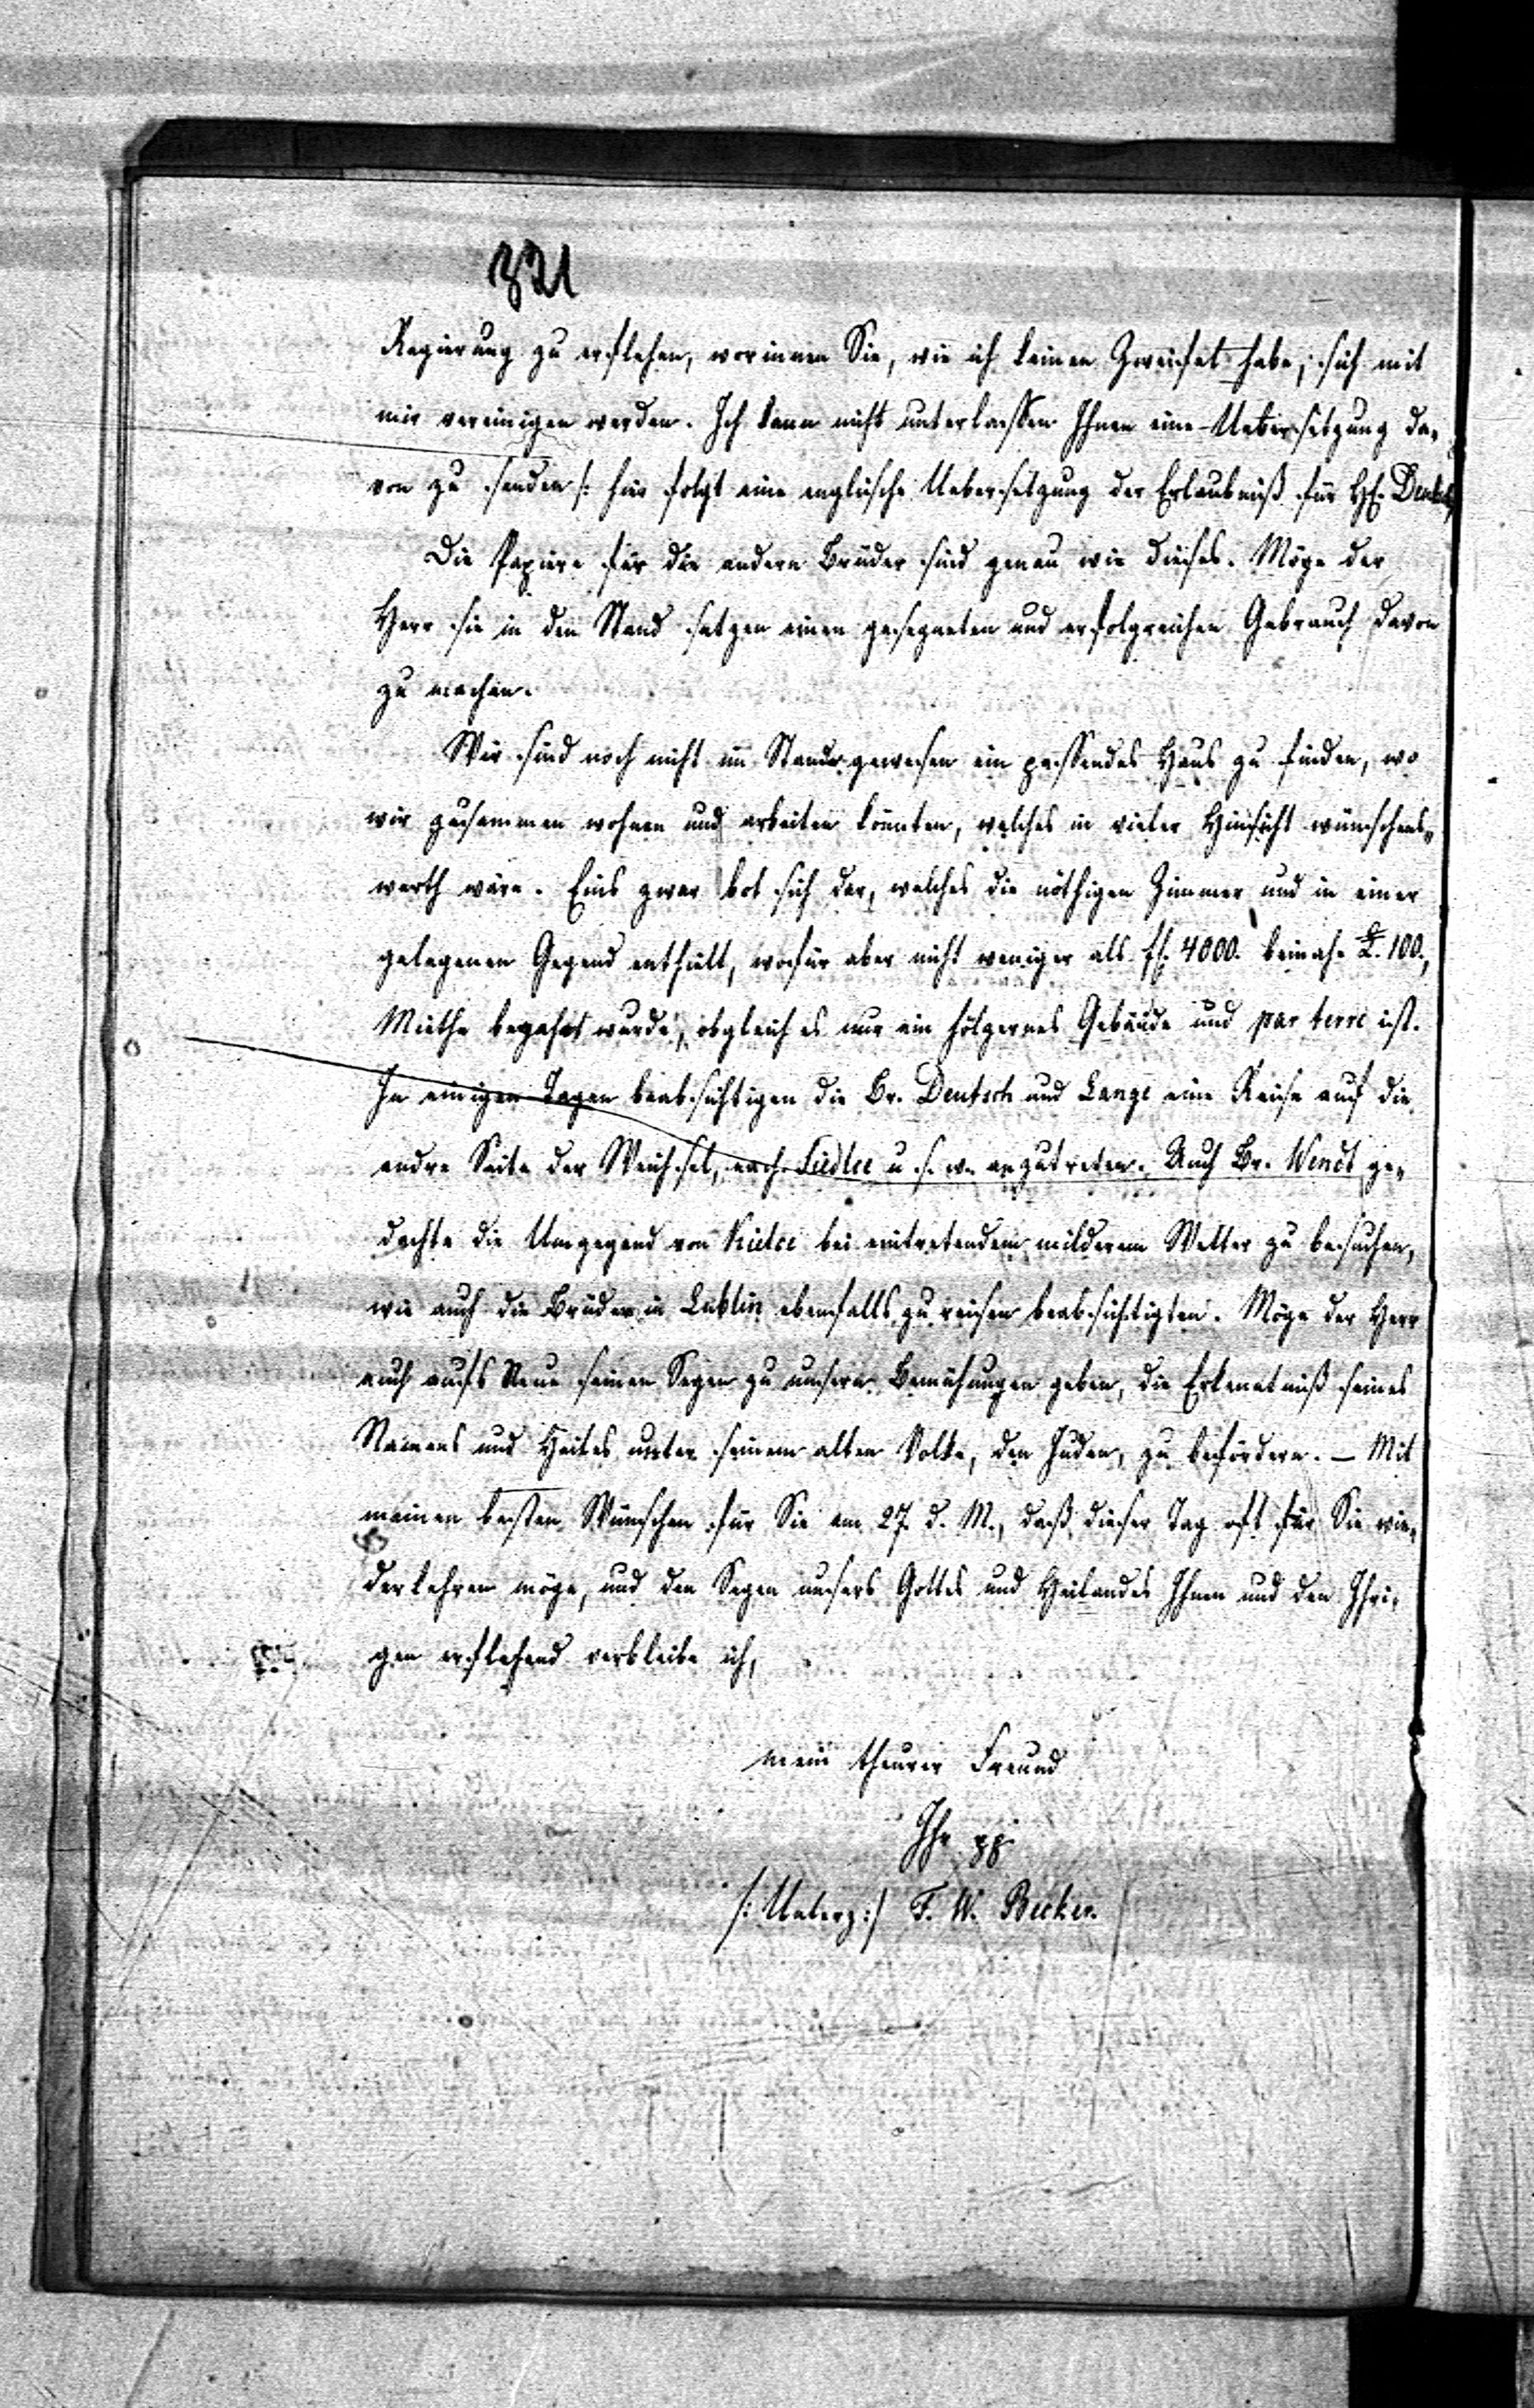 321
Regierung zu erflehen, worinnen Sie, wie ich keinen Zweifel habe, sich mit
mir vereinigen werden. Ich kann nicht unterlassen Ihnen eine Uebersetzung da-
von zu senden /: hier folgt eine englische Uebersetzung der Erlaubniß für H. Deutsch
Die Papiere für die andern Brüder sind genau wie dieses. Möge der
Herr sie in den Stand setzen einen gesegneten und erfolgreichen Gebrauch davon
zu machen.
Wir sind noch nicht im Stande gewesen ein passendes Haus zu finden, wo
wir zusammen wohnen und arbeiten könnten, welches in vieler Hinsicht wünschens-
werth wäre. Eins zwar bot sich dar, welches die nöthigen Zimmer und in einer
gelegenen Gegend enthielt, wofür aber nicht weniger als fl. 4000. beinah £. 100.,
Miethe begehrt wurde, obgleich es nur ein hölzernes Gebäude und par terre ist.
In einigen Tagen beabsichtigen die Br. Deutsch und Lange eine Reise auf die
andre Seite der Weichsel, nach Siedlce u. s. w. anzutreten. Auch Br. Wendt ge-
dachte die Umgegend von Kielce bei eintretendem milderem Wetter zu besuchen,
wie auch die Brüder in Lublin ebenfalls zu reisen beabsichtigten. Möge der Herr
auch aufs Neue seinen Segen zu unsern Bemühungen geben, die Erkenntniß seines
Namens und Heiles unter seinem alten Volke, den Juden, zu befördern. — Mit
meinen besten Wünschen für Sie am 27. d. M., daß dieser Tag oft für Sie wie-
derkehren möge, und den Segen unsers Gottes und Heilandes Ihnen und den Ihri-
gen erflehend verbleibe ich,
mein theurer Freund
Ihr pp
/: Unterz :/ F. W. Becker.